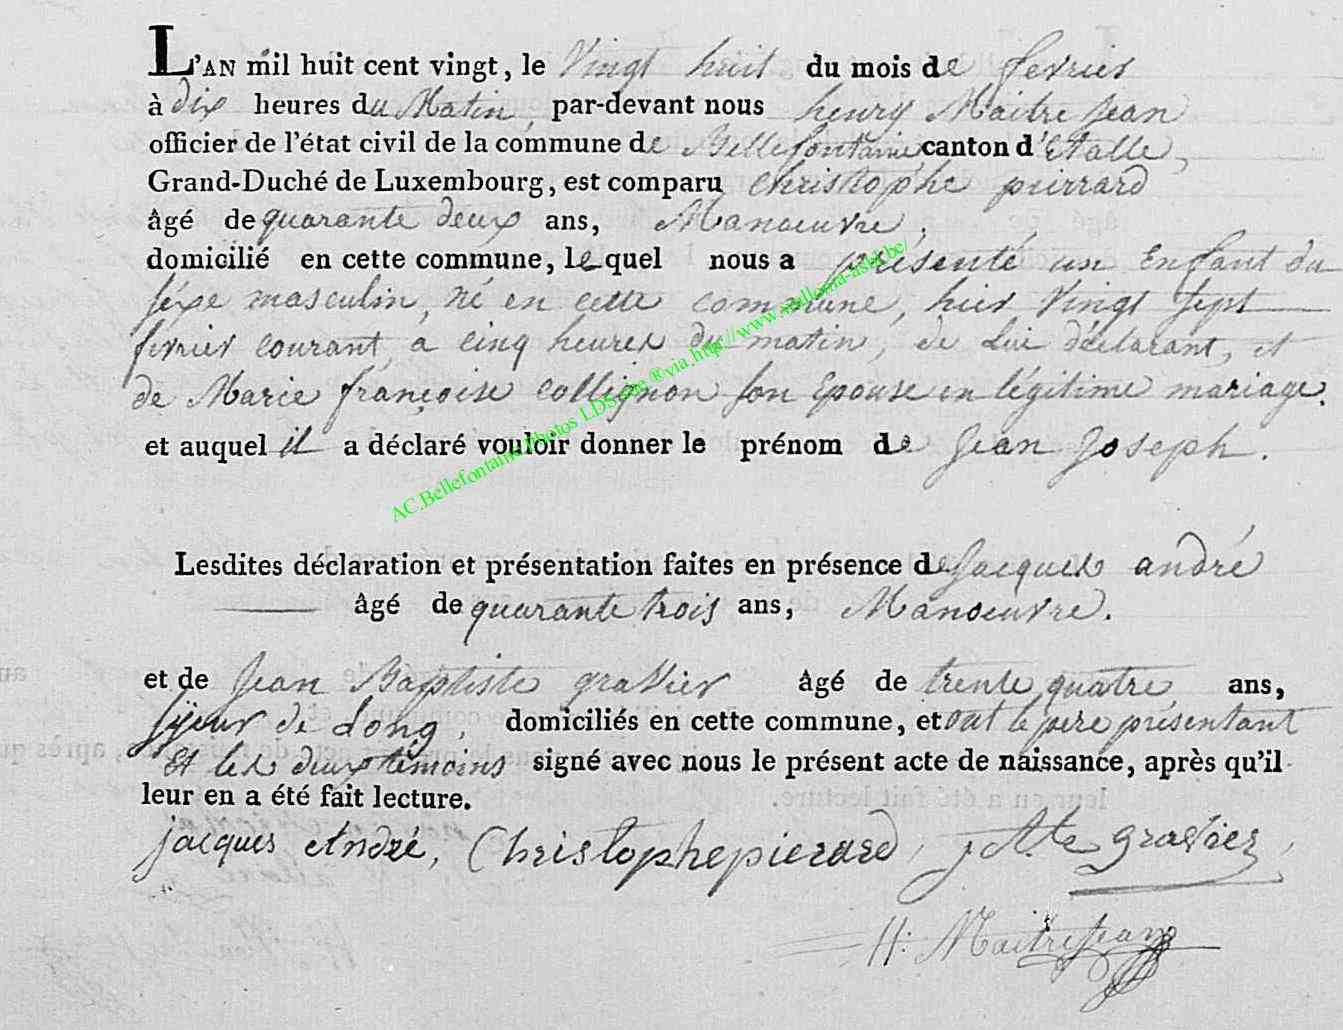 L'AN mil huit cent vingt, le Vingt huit du mois de fevrier
à dix heures du Matin, par-devant nous henry Maitrejean
officier de l'état civil de la commune de Bellefontaine canton d'Etalle,
Grand-Duché de Luxembourg, est comparu Christophe pierrard
âgé de quarante deux ans, Manoeuvre,
domicilié en cette commune, lequel nous a présenté un Enfant du
séxe masculin, né en cette commune, hier Vingt sept
fevrier courant, a cinq heures du matin, de Lui déclarant, et
de Marie françoise collignon son Epouse en légitime mariage.
et auquel il a déclaré vouloir donner le prénom de Jean Joseph.
AC.Bellefontaine Photos LDS ® via http://www.
Lesdites déclaration et présentation faites en présence de Jacques andré
âgé de quarante trois ans, Manoeuvre.
et de Jean Baptiste gravier âgé de trente quatre ans,
de Long, domiciliés en cette commune, et ont le pere présentant
Et les deux témoins signé avec nous le présent acte de naissance, après qu'il
leur en a été fait lecture.
jacques André, Christophe pierard, gravier,
H: Maitrejean